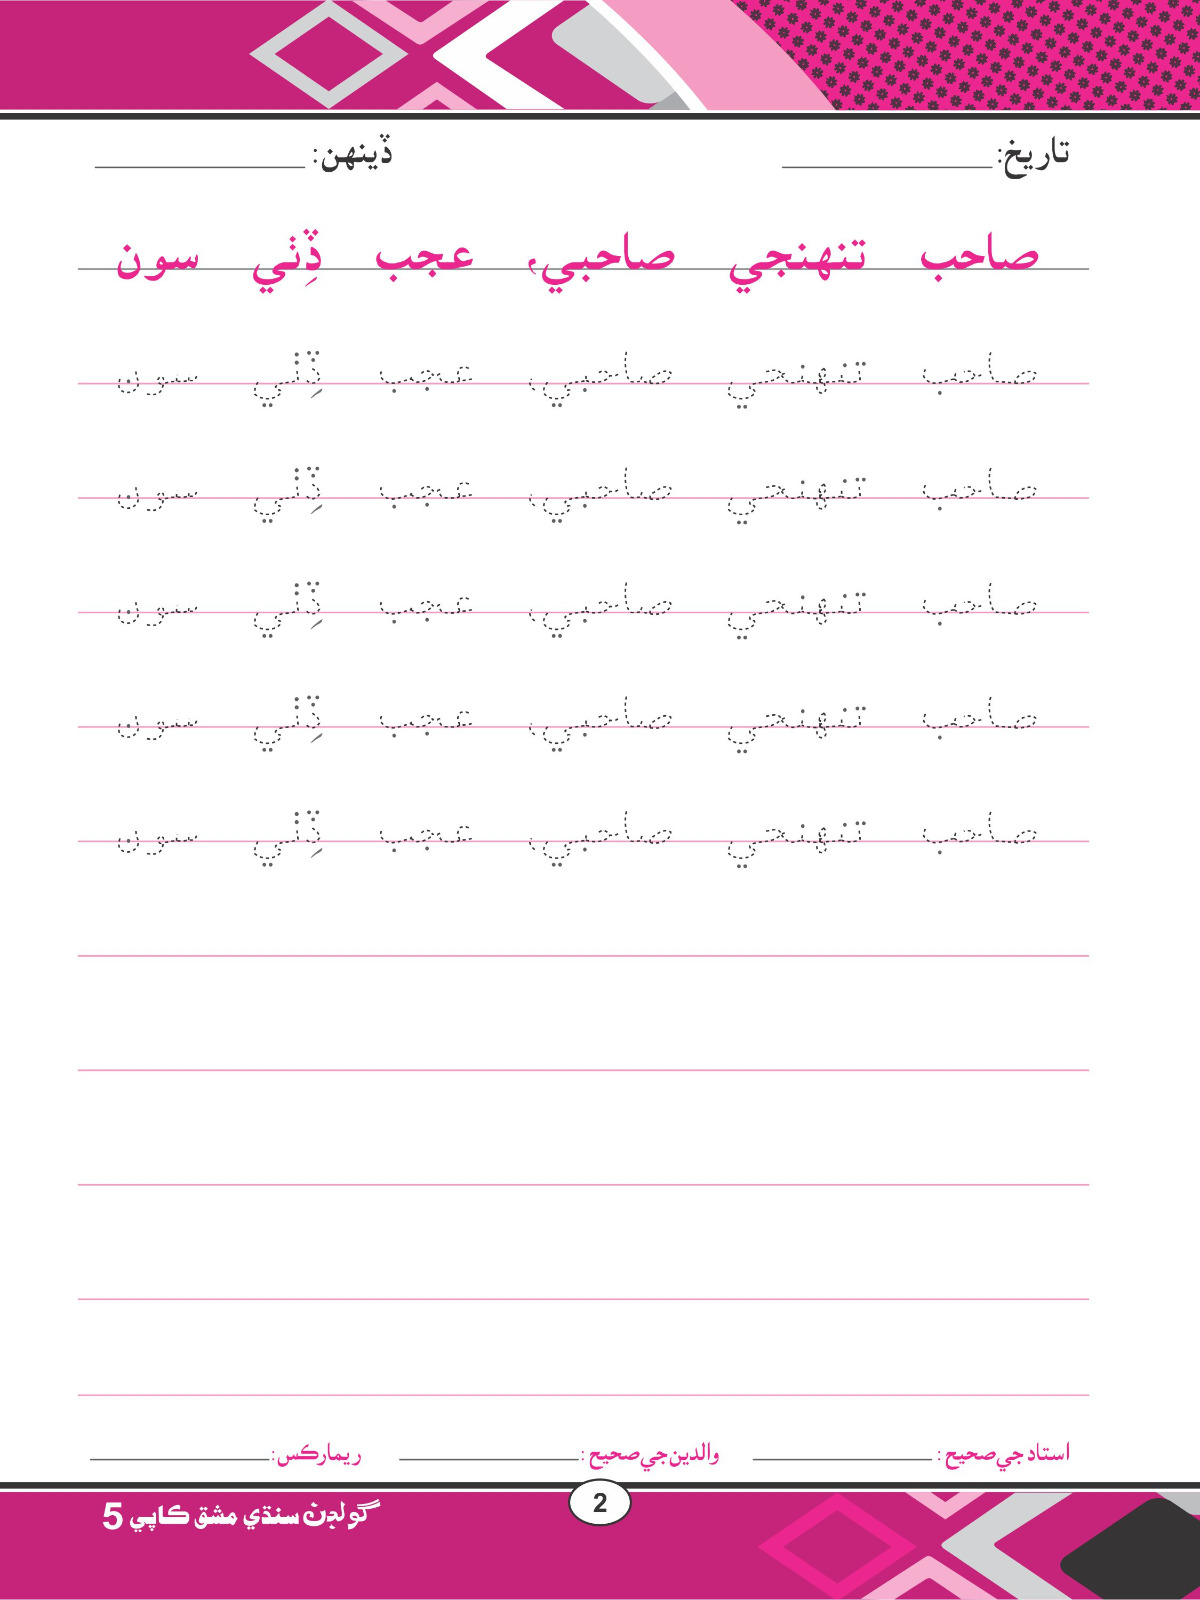 تاريخ: ڏينهن:
صاحب تنهنجي صاحبي، عجب ڏِٺي سون
صاحب تنهنجي صاحبي، عجب ڏِٺي سون
صاحب تنهنجي صاحبي، عجب ڏِٺي سون
صاحب تنهنجي صاحبي، عجب ڏِٺي سون
صاحب تنهنجي صاحبي، عجب ڏِٺي سون
صاحب تنهنجي صاحبي، عجب ڏِٺي سون
استاد جي صحيح: والدين جي صحيح: ريمارڪس:
2
گولڊن سنڌي مشق ڪاپي 5